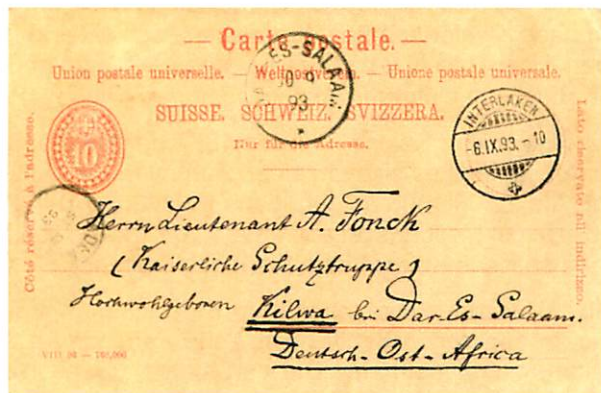 — Carte postale. —
Union postale universelle. — Weltpostverein. — Unione postale universale.
SUISSE. SCHWEIZ. SVIZZERA.
Nur für die Adresse.
Côté réservé à l'adresse.
Lato riservato all' indirizzo.
10
ES-SALAAM
93
INTERLAKEN
-6.IX.93.-10
Herrn Lieutenant A. Fonck
(Kaiserliche Schutztruppe)
Hochwohlgeboren Kilwa bei Dar-Es-Salaam.
Deutsch-Ost-Africa